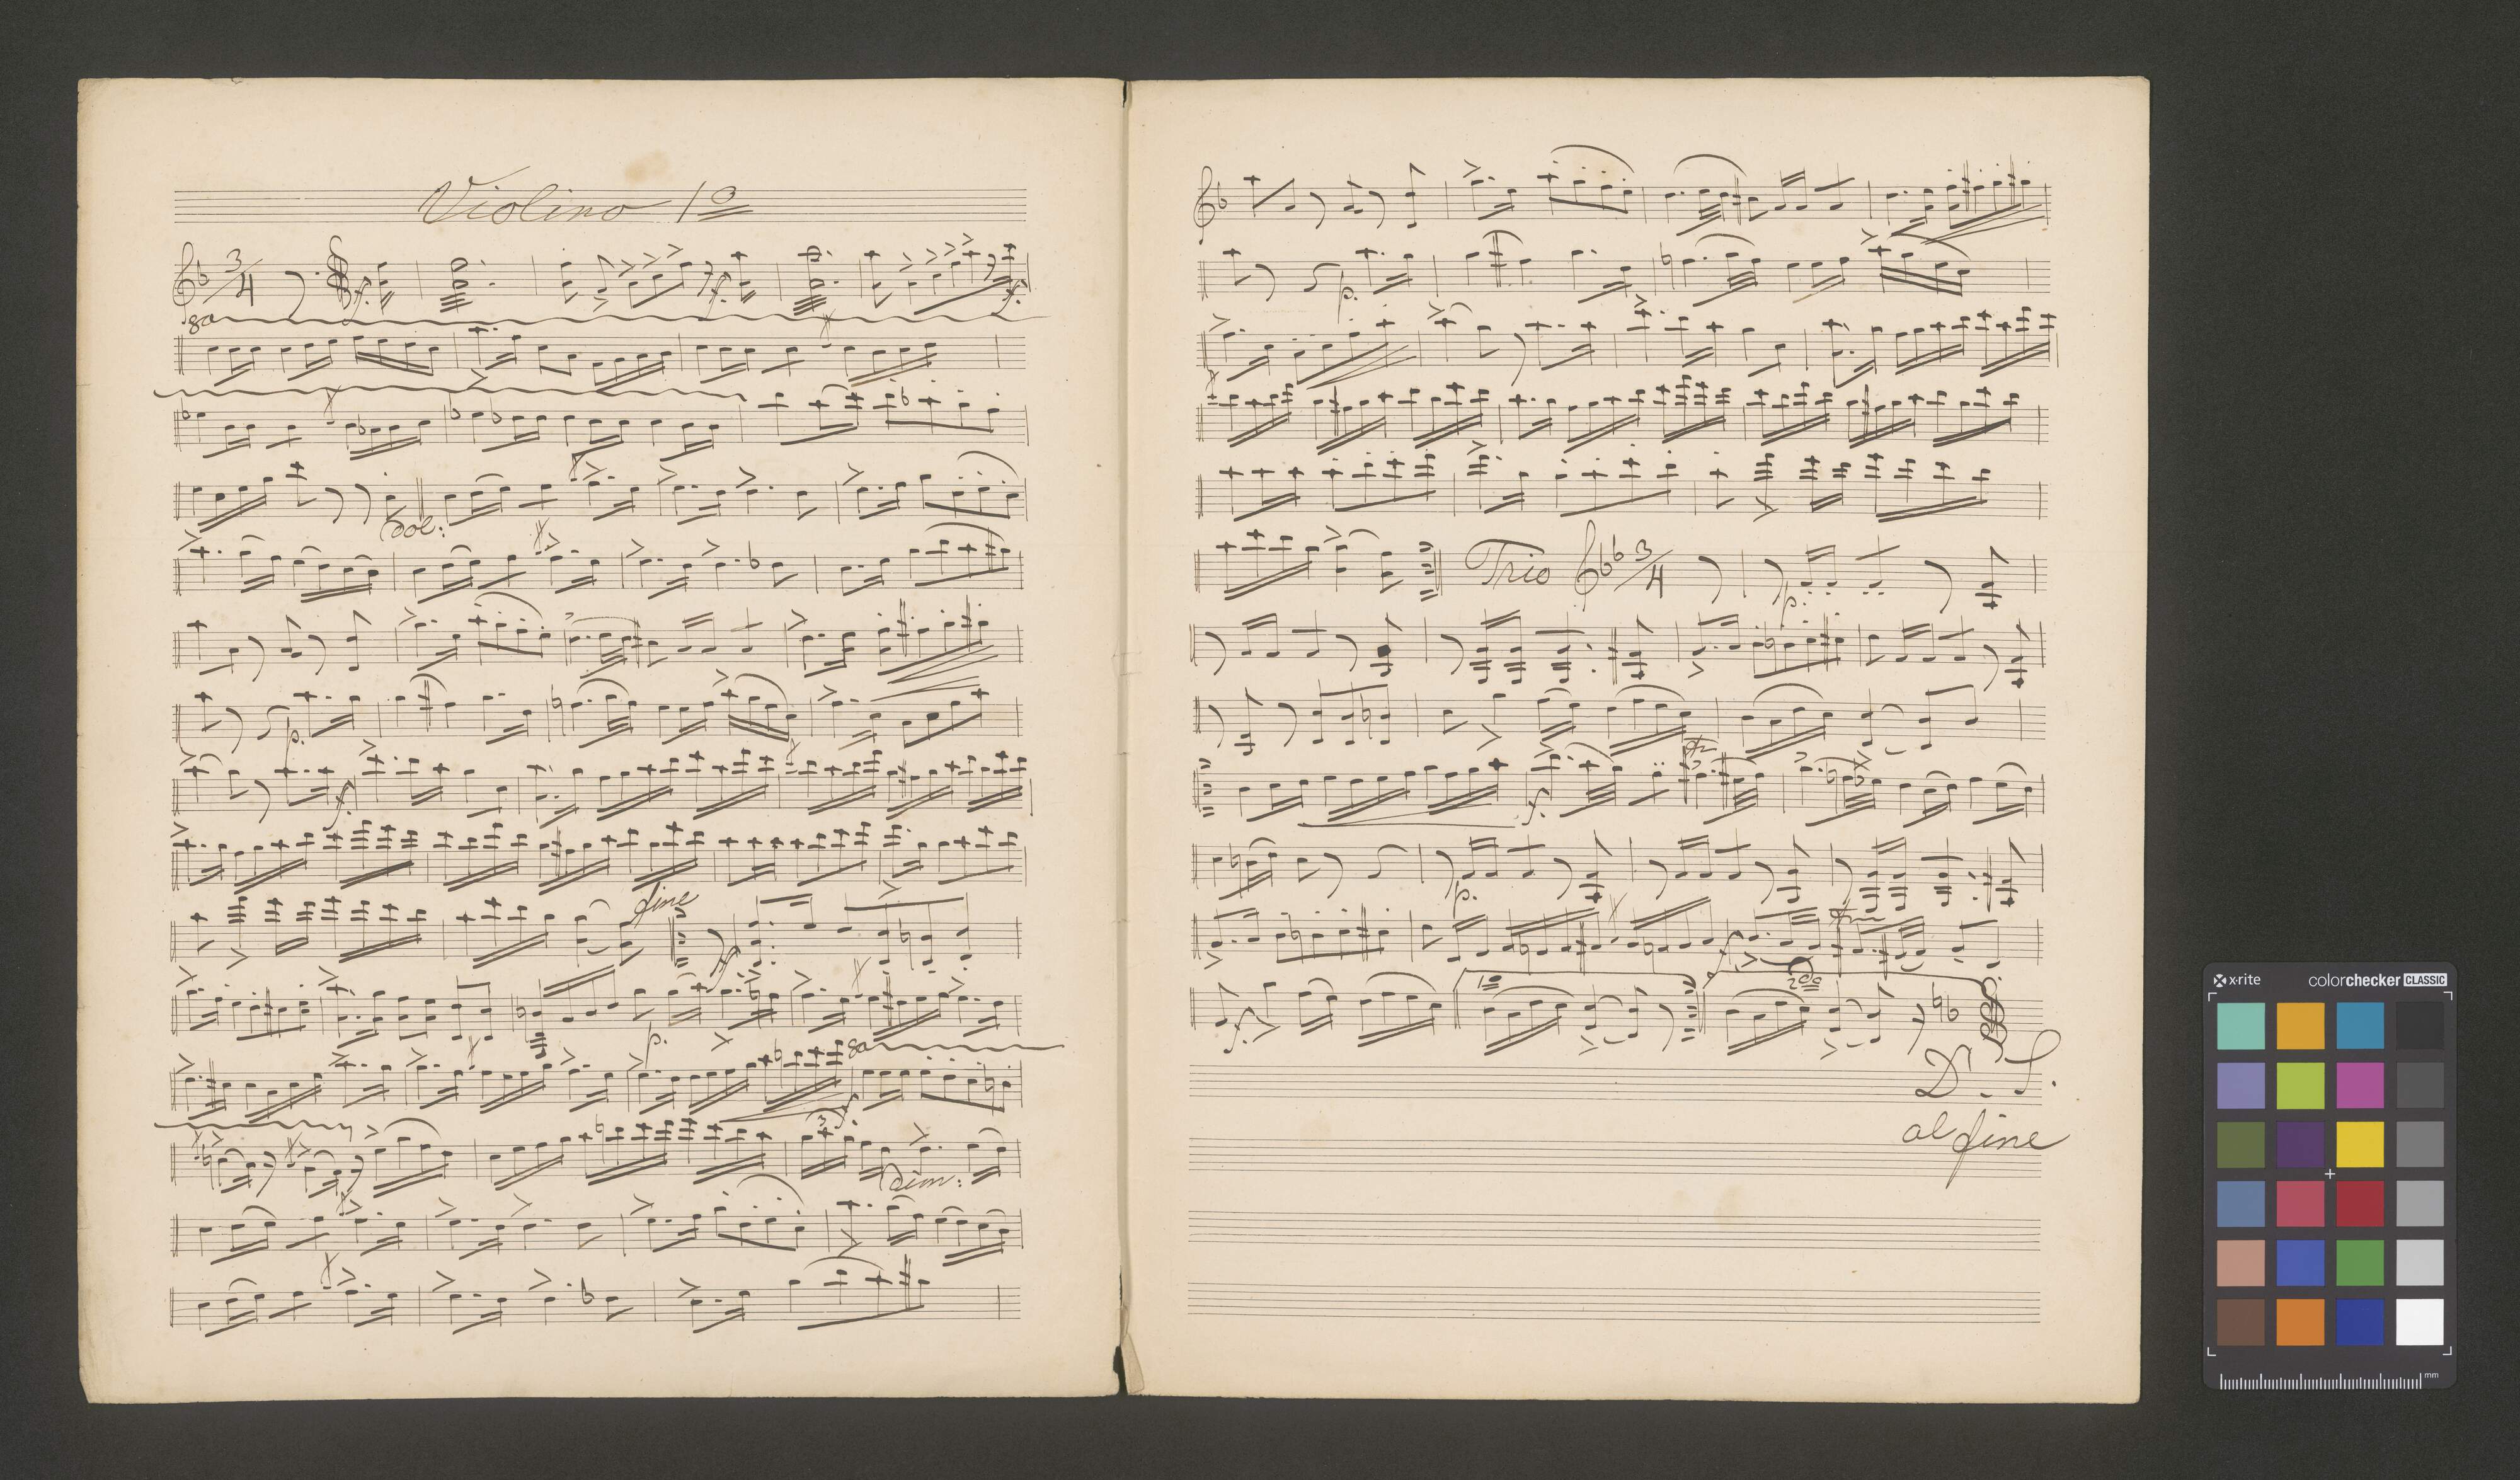 Violino 1º
3/4
f.
f.
f.
8a
dol:
p.
f
fine
ff
p.
8a
3
f.
dim:
p.
Trio 3/4
p.
tr
f.
p.
tr
f
1º 2do
f.
D. S.
al fine
x-rite colorchecker CLASSIC
mm